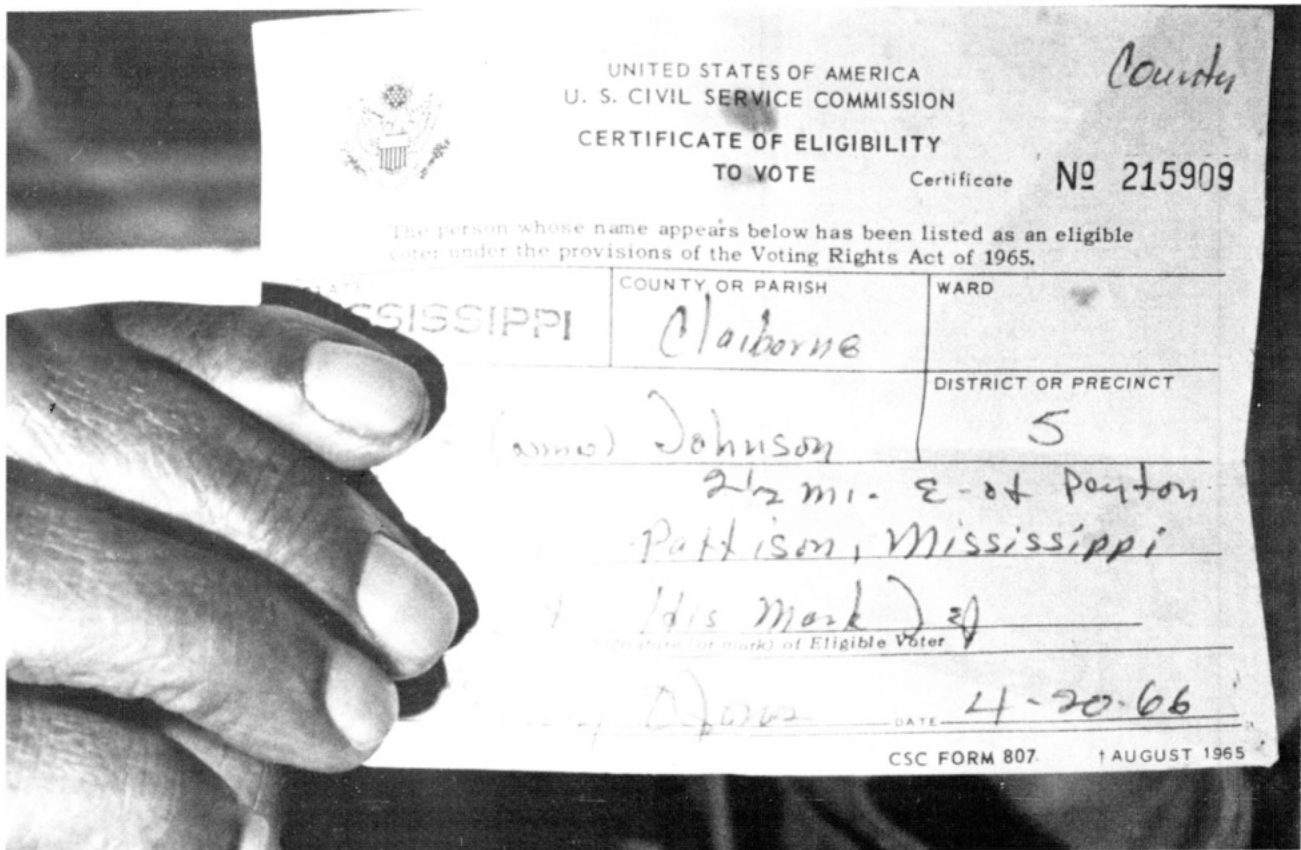 County
UNITED STATES OF AMERICA
U. S. CIVIL SERVICE COMMISSION
CERTIFICATE OF ELIGIBILITY
TO VOTE
Certificate Nº 215909
The person whose name appears below has been listed as an eligible
voter under the provisions of the Voting Rights Act of 1965.
COUNTY OR PARISH WARD
SSISSIPPI Claiborne
DISTRICT OR PRECINCT
Johnson 5
2 1/2 mi. E-of Peyton
Pattison, Mississippi
His Mark)
Signature (or mark) of Eligible Voter
DATE 4-20-66
CSC FORM 807 † AUGUST 1965